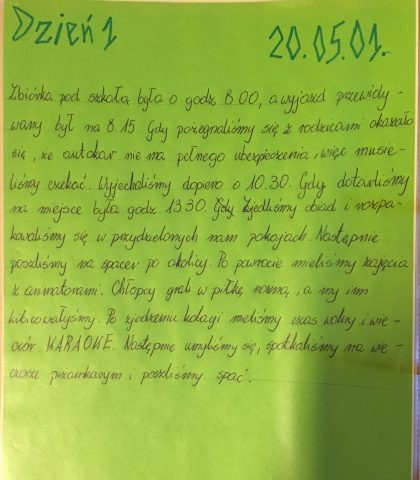 Dzień 1 20.05.01.
Zbiórka pod szkołą była o godz 8.00, a wyjazd przewidy-
wany był na 8.15. Gdy pożegnaliśmy się z rodzicami okazało
się, że autokar nie ma pełnego ubezpieczenia, więc musie-
liśmy czekać. Wyjechaliśmy dopiero o 10.30. Gdy dotarliśmy
na miejsce była godz 13.30. Gdy Zjedliśmy obiad i rozpa-
kowaliśmy się w przydzielonych nam pokojach. Następnie
poszliśmy na spacer po okolicy. Po powrocie mieliśmy zajęcia
z animatorami. Chłopcy grali w piłkę nożną, a my im
kibicowałyśmy. Po zjedzeniu kolacji mieliśmy czas wolny i wie-
czór KARAOKE. Następnie umyliśmy się, spotkaliśmy na wie-
czorze piżamkowym i poszliśmy spać.